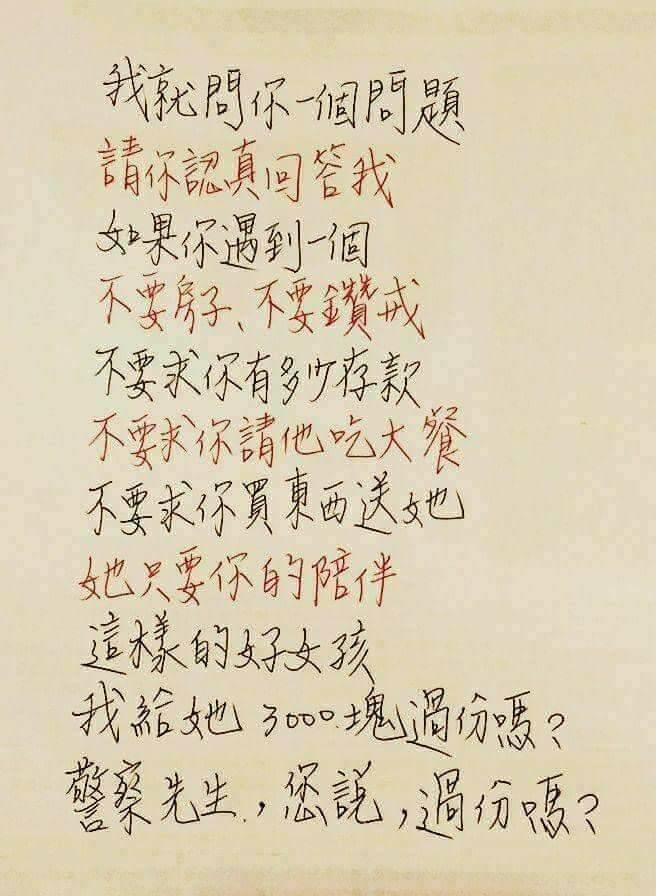 我就問你一個問題
請你認真回答我
如果你遇到一個
不要房子、不要鑽戒
不要求你有多少存款
不要求你請他吃大餐
不要求你買東西送她
她只要你的陪伴
這樣的好女孩
我給她3000.塊過份嗎?
警察先生.,您說,過份嗎?